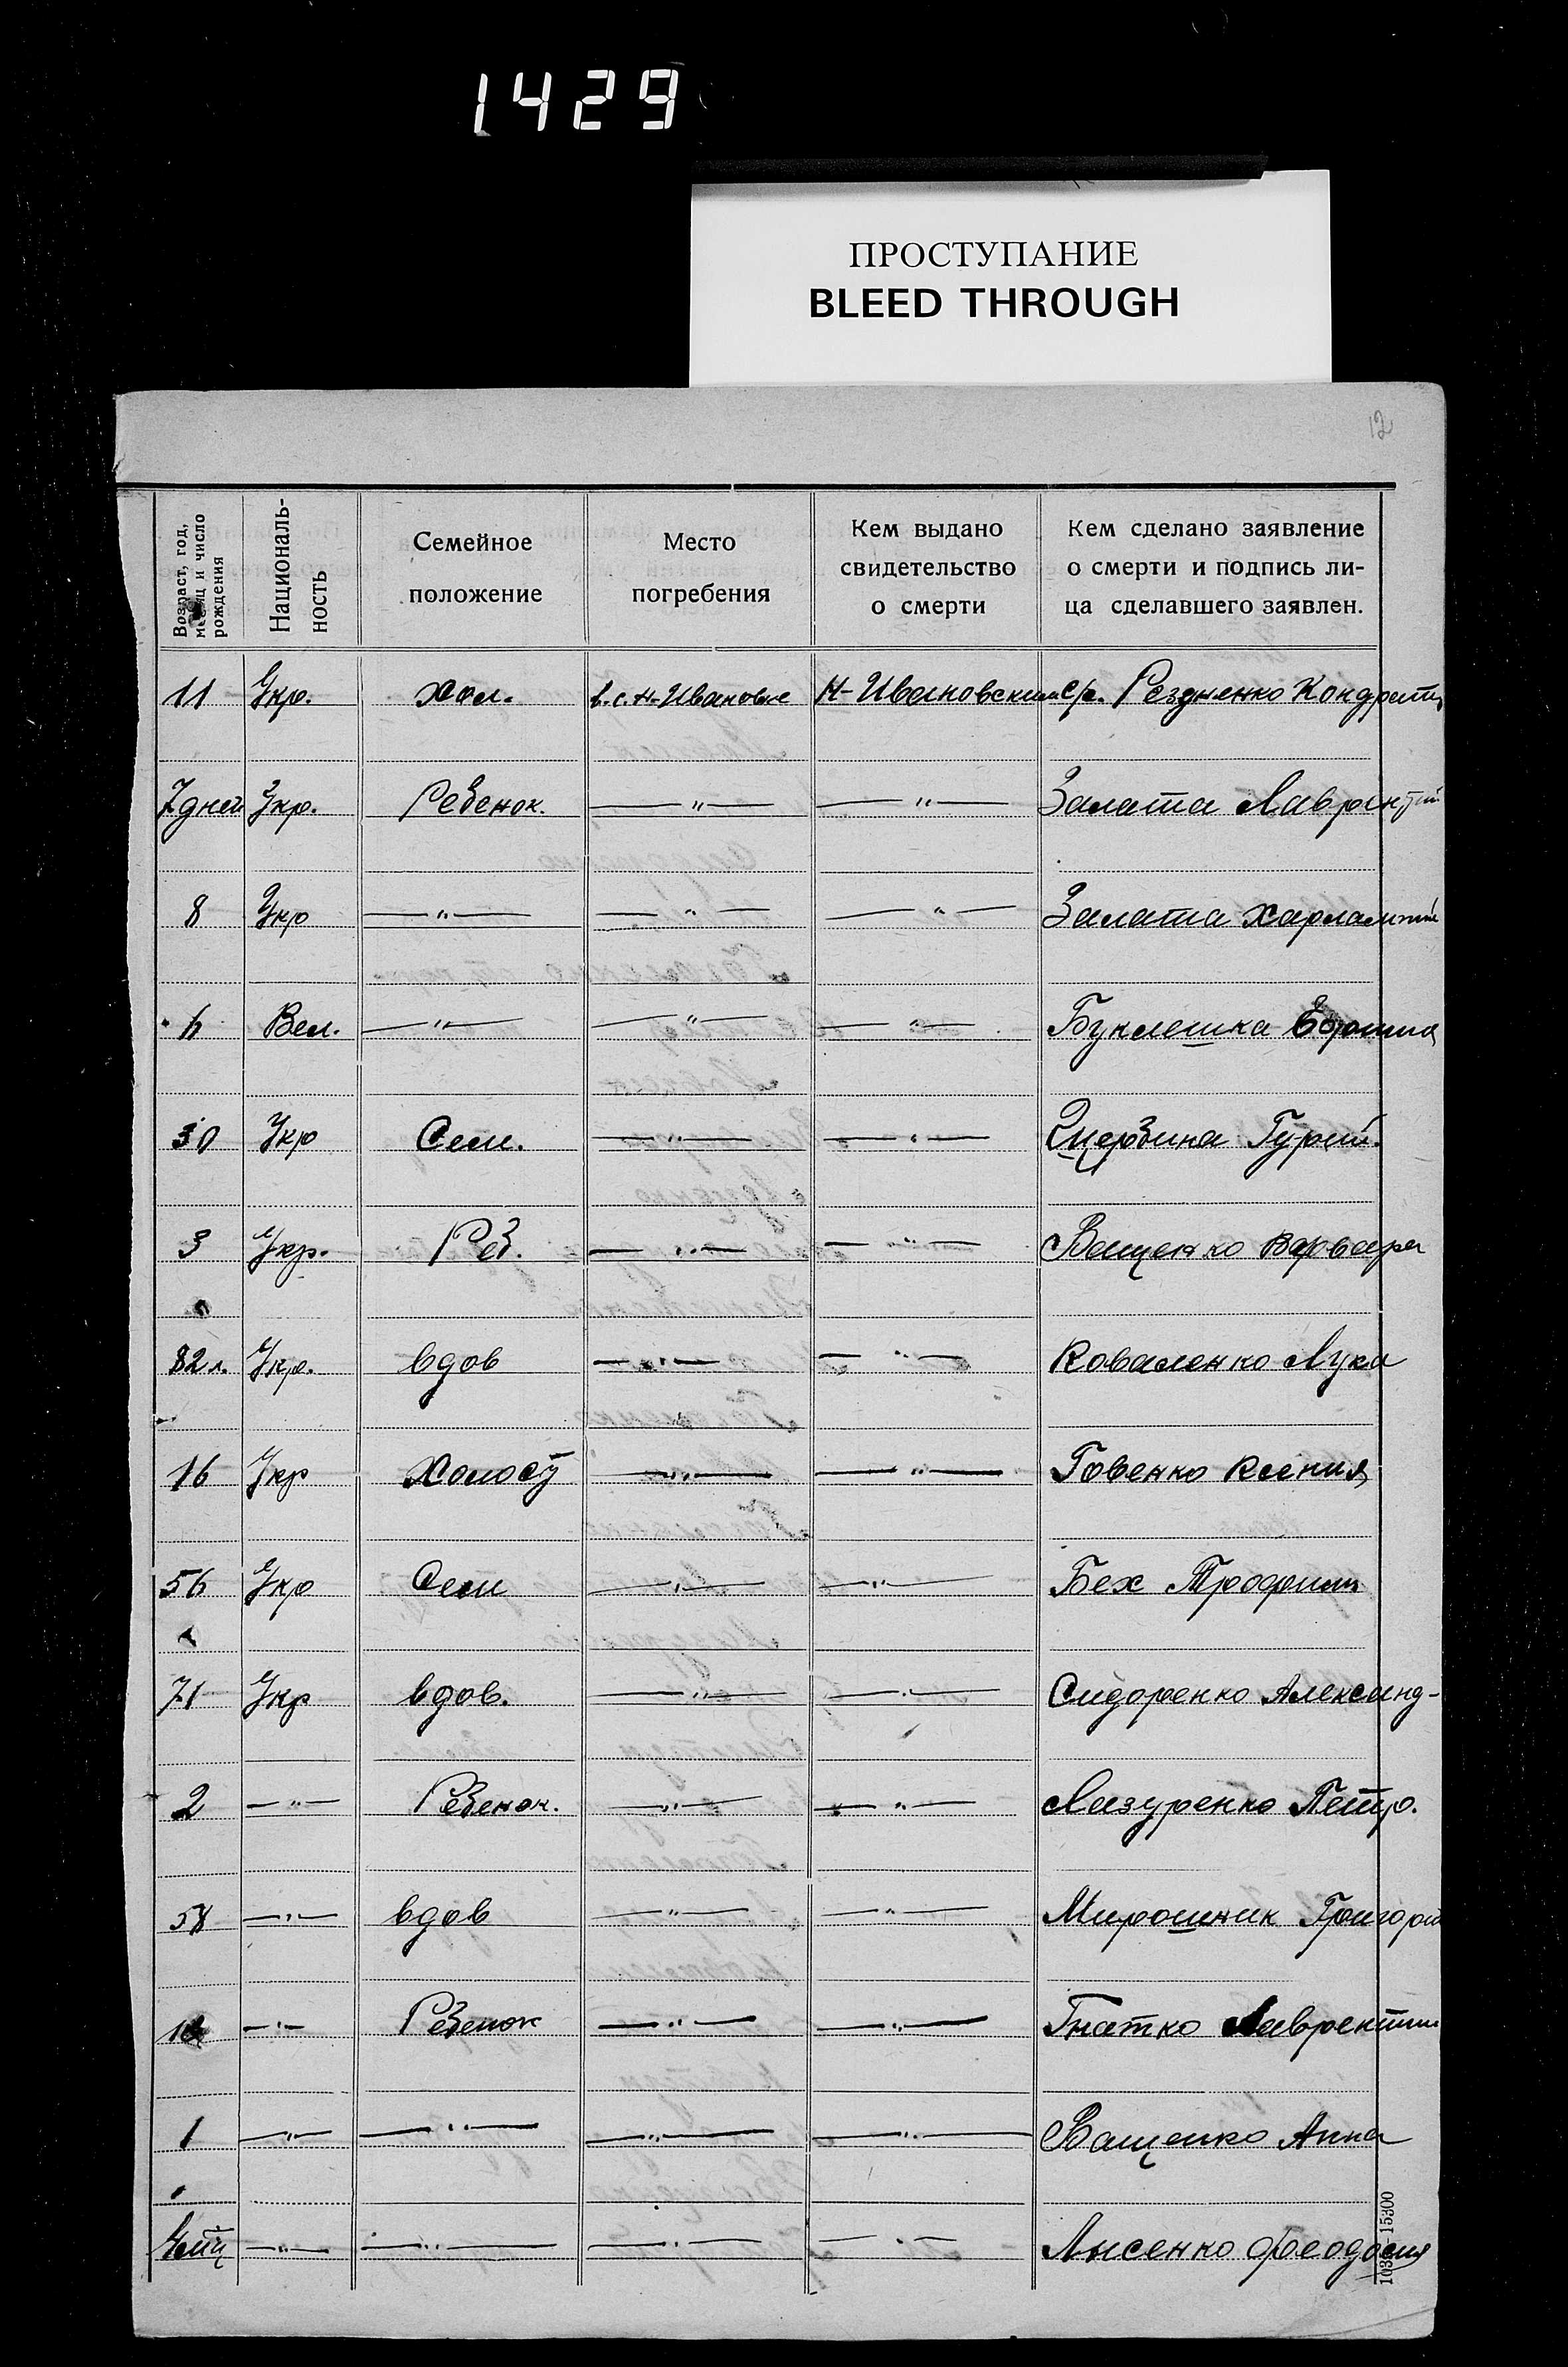 1429
ПРОСТУПАНИЕ
BLEED THROUGH
12
Возраст, год, месяц и число рождения
Националь-
ность
Семейное
положение
Место
погребения
Кем выдано
свидетельство
о смерти
Кем сделано заявление
о смерти и подпись ли-
ца сделавшего заявлен.
11 Укр. Хол. в. с. Н-Ивановке Н-Ивановским с/с. Кондратий
7 дней Укр. Ребенок. —"— —"— Залата Лаврентий
8 Укр —"— —"— —"— Залата Харлампий
Вел. —"— —"— —"—
30 Укр Сем. —"— —"— Щербина Гурий.
3 Укр. Реб. —"— —"— Ващенко Варвара
82 л. Укр. вдов —"— —"— Коваленко Лука
16 Укр Холост —"— —"— Говенко Ксения
56 Укр Сем —"— —"— Бех Трофим
71 Укр вдов. —"— —"— Сидоренко Александ-
2 —"— Ребенок. —"— —"— Мазуренко Петр.
58 —"— вдов —"— —"— Мирошник Григорий
—"— Ребенок —"— —"— Гнатко Лаврентий
1 —"— —"— —"— —"— Ващенко Анна
4 мц —"— —"— —"— —"— Лысенко Феодосия
15300